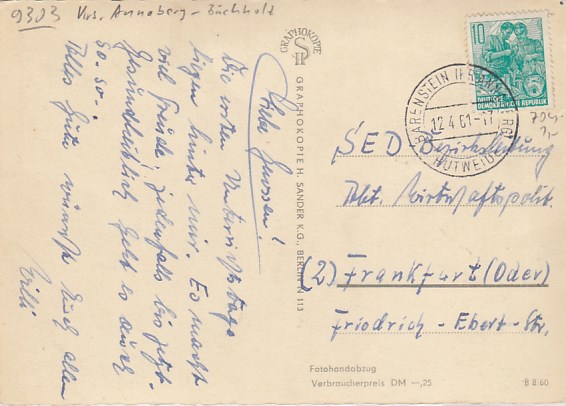 9303 Krs. Annaberg-Buchholz
Liebe Genossen!
Die ersten Unterrichtstage
liegen hinter mir. Es macht
viel Freude, jedenfalls bis jetzt.
Gesundheitlich geht es auch
so so.
Alles Gute wünscht Euch allen
GRAPHOKOPIE
GRAPHOKOPIE H. SANDER K.G., BERLIN N 113
10
DEUTSCHE
DEMOKRATISCHE REPUBLIK
BÄRENSTEIN (KR ANNABERG)
12.4.61-17
SED Bezirksleitung
Abt. Wirtschaftspolit.
(2) Frankfurt (Oder)
Friedrich-Ebert-Str.
Fotohandabzug
Verbraucherpreis DM —,25
B 8/60